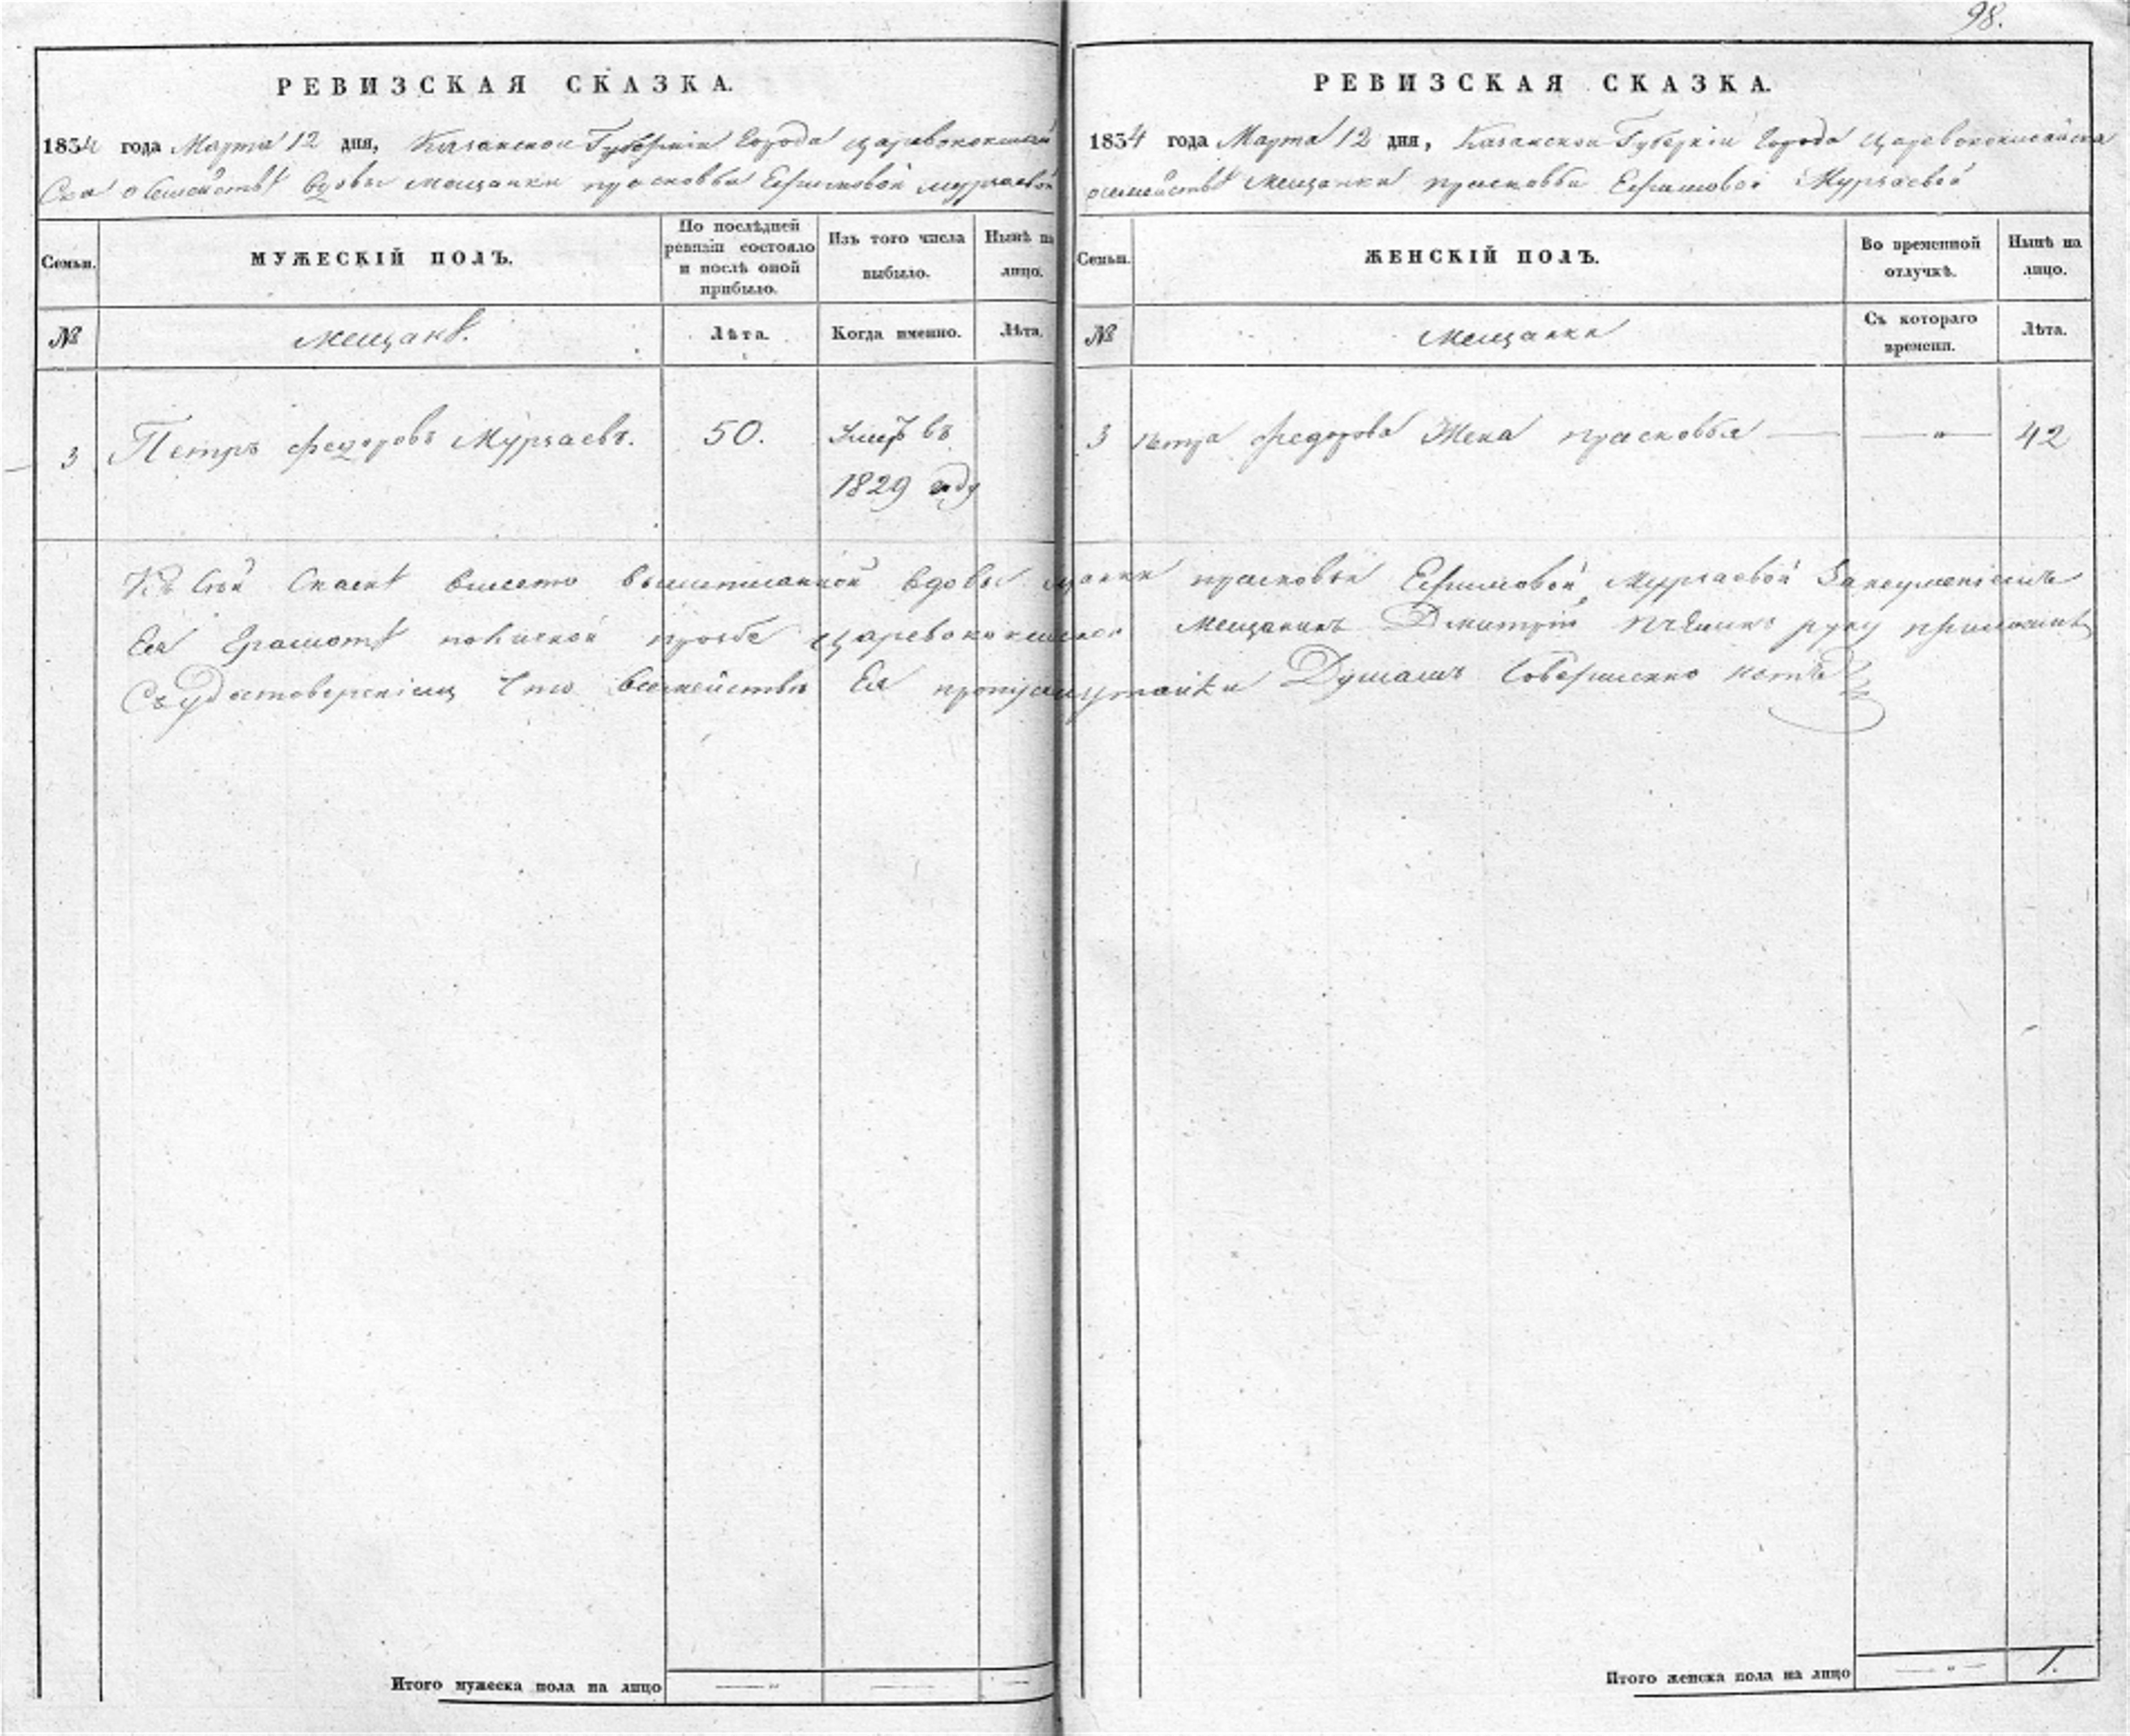 98.
РЕВИЗСКАЯ СКАЗКА.
1834 года Марта 12 дня, Казанской Губерніи Города Царевококшай
Ска о Семействѣ вдовы мещанки прасковьи Ефимовой мурзаевой
Семьи.
МУЖЕСКІЙ ПОЛЪ.
По послѣдней
ревизіи состояло
и послѣ оной
прибыло.
Изъ того числа
выбыло.
Нынѣ на
лицо.
№
мещанѣ.
Лѣта.
Когда именно.
Лѣта.
3
Петръ федоровъ Мурзаевъ.
50.
Умеръ въ
1829 году
РЕВИЗСКАЯ СКАЗКА.
1834 года Марта 12 дня, Казанской Губерніи Города Царевококшайска
осемействѣ Мещанки прасковьи Ефимовой Мурзаевой
Семьи.
ЖЕНСКІЙ ПОЛЪ.
Во временной
отлучкѣ.
Нынѣ на
лицо.
№
Мещанки
Съ котораго
времени.
Лѣта.
3
Петра федорова Жена прасковья — — " —
42
Къ Сей Сказкѣ вместо вышеписанной вдовы прасковьи Ефимовой Мурзаевой Занеуменіемъ
Ея Грамотѣ прозбе Царевококшайской Мещанинъ Дмитрій руку приложилъ
Съудостовереніемъ Что всемействѣ Ея Душамъ Совершенно нетъ
Итого мужеска пола на лицо — " — — —
Итого женска пола на лицо — " — 1.